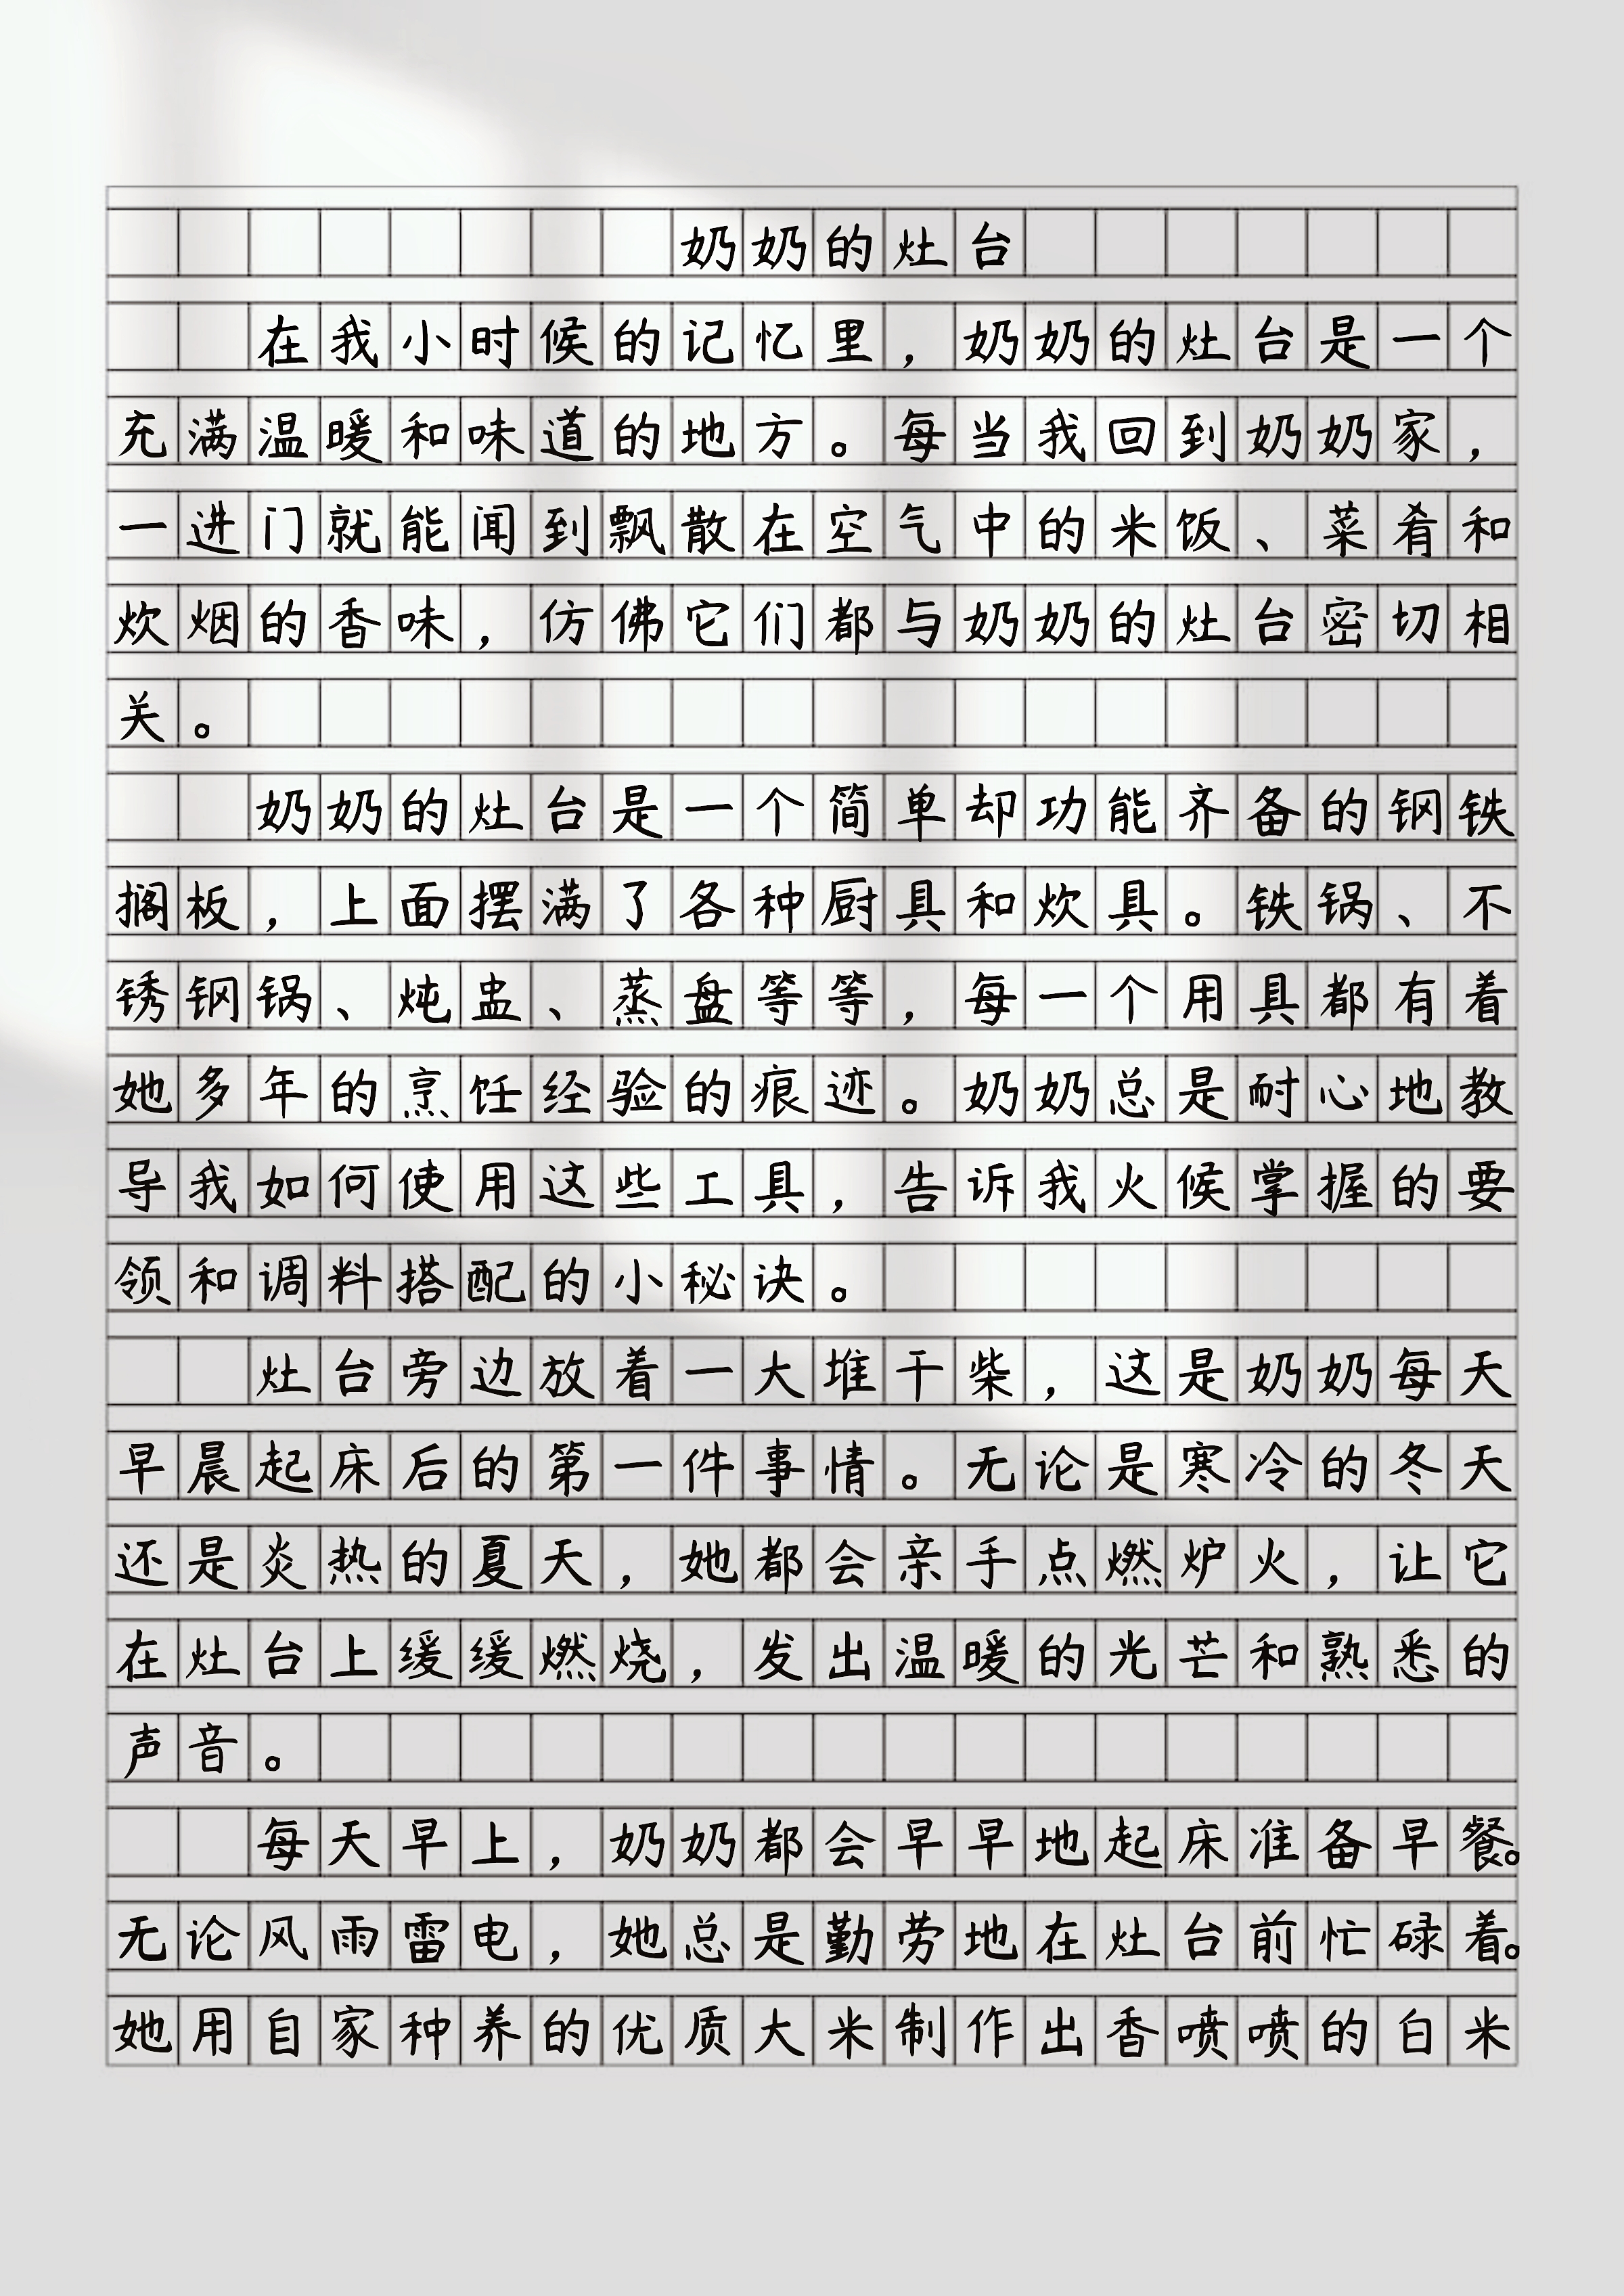 奶奶的灶台
在我小时候的记忆里，奶奶的灶台是一个
充满温暖和味道的地方。每当我回到奶奶家，
一进门就能闻到飘散在空气中的米饭、菜肴和
炊烟的香味，仿佛它们都与奶奶的灶台密切相
关。
奶奶的灶台是一个简单却功能齐备的钢铁
搁板，上面摆满了各种厨具和炊具。铁锅、不
锈钢锅、炖盅、蒸盘等等，每一个用具都有着
她多年的烹饪经验的痕迹。奶奶总是耐心地教
导我如何使用这些工具，告诉我火候掌握的要
领和调料搭配的小秘诀。
灶台旁边放着一大堆干柴，这是奶奶每天
早晨起床后的第一件事情。无论是寒冷的冬天
还是炎热的夏天，她都会亲手点燃炉火，让它
在灶台上缓缓燃烧，发出温暖的光芒和熟悉的
声音。
每天早上，奶奶都会早早地起床准备早餐。
无论风雨雷电，她总是勤劳地在灶台前忙碌着。
她用自家种养的优质大米制作出香喷喷的白米